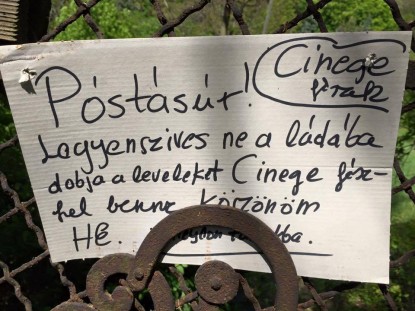 Póstásúr!
Cinege
fészek
Legyenszíves ne a ládába
dobja a leveleket Cinege fész-
kel benne Köszönöm
HE.